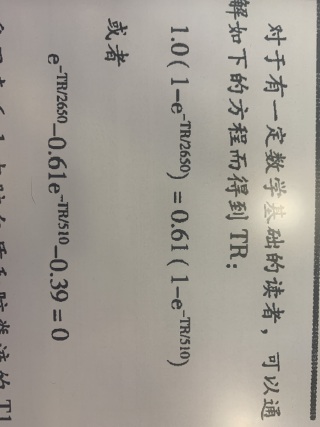 对于有一定数学基础的读者，可以通
解如下的方程而得到TR：
1.0(1-e^-TR/2650)=0.61(1-e^-TR/510)
或者
e^-TR/2650-0.61e^-TR/510-0.39=0